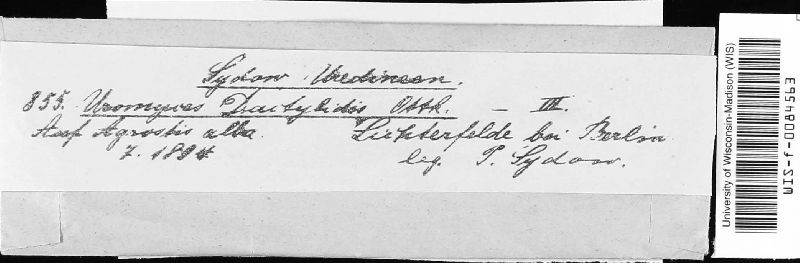 Sydow Uredineen.
855. Uromyces Dactylidis Otth. — III.
Auf Agrostis alba. Lichterfelde bei Berlin
7. 1894 leg. P. Sydow.
University of Wisconsin-Madison (WIS)
WIS-f-0084563